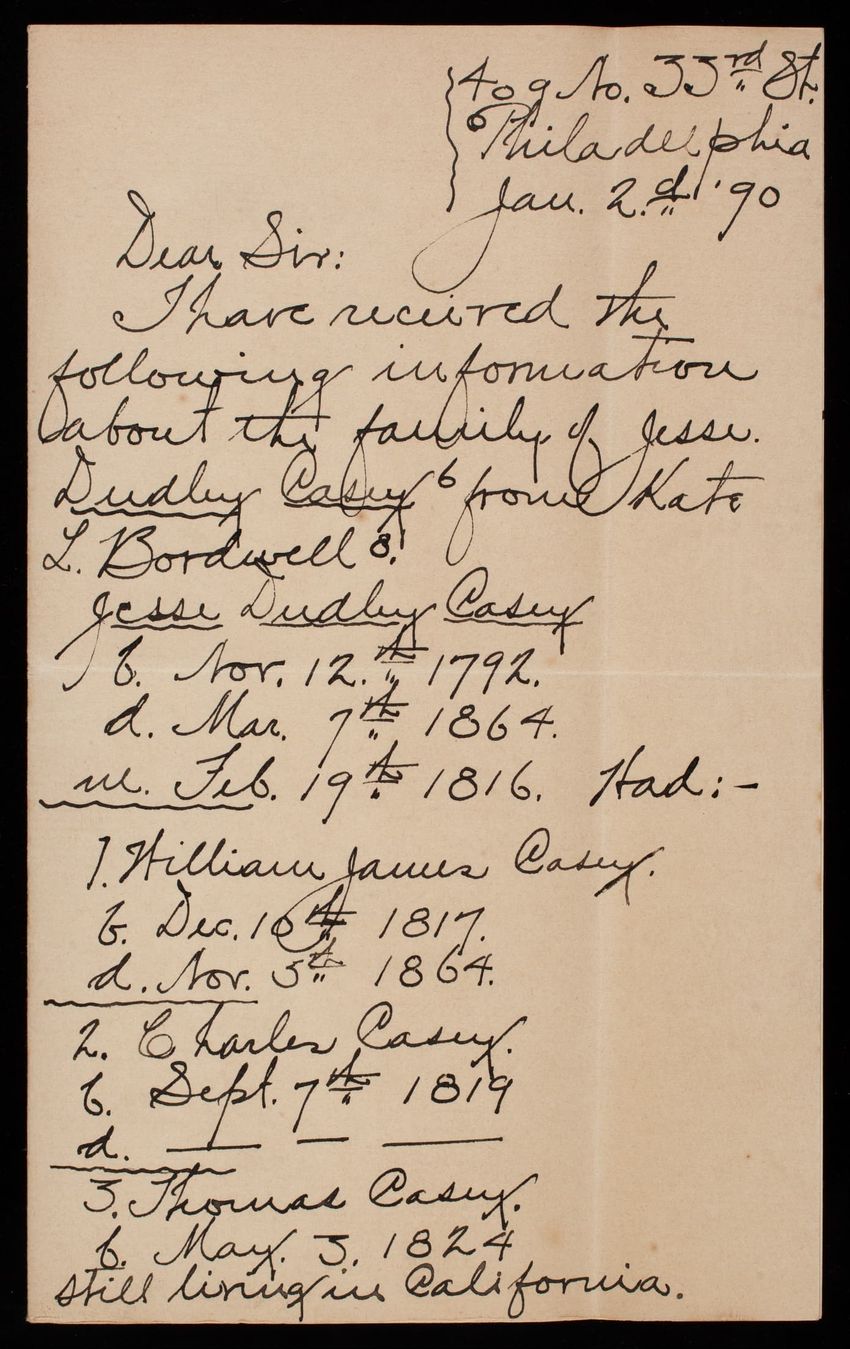 409 No. 33rd St.
Philadelphia
Jan. 2.d '90
Dear Sir:
I have received the
following information
about the family of Jesse.
Dudley Casey 6 from Kate
L. Bordwell 8.
Jesse Dudley Casey
b. Nov. 12.th 1792.
d. Mar. 7th 1864.
m. Feb. 19th 1816. Had:-
1. William James Casey.
b. Dec. 10th 1817.
d. Nov. 5th 1864.
2. Charles Casey.
b. Sept. 7th 1819
d. — — —
3. Thomas Casey.
b. May. 3. 1824
still living in California.